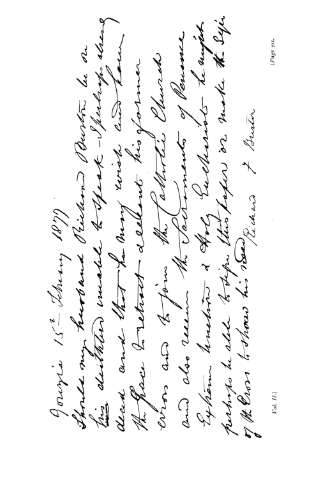 Gorizia 15th February 1877
Should my husband Richard Burton be on
his deathbed unable to speak - perhaps already
dead and that he may wish and have
the grace to retract & recant his former
errors and to join the Catholic Church
and also receive the Sacraments of Penance
Extreme Unction & Holy Eucharist he might
perhaps be able to sign this paper or make the sign
of the Cross to show his need
Richard F Burton
Vol. II.]
[Page